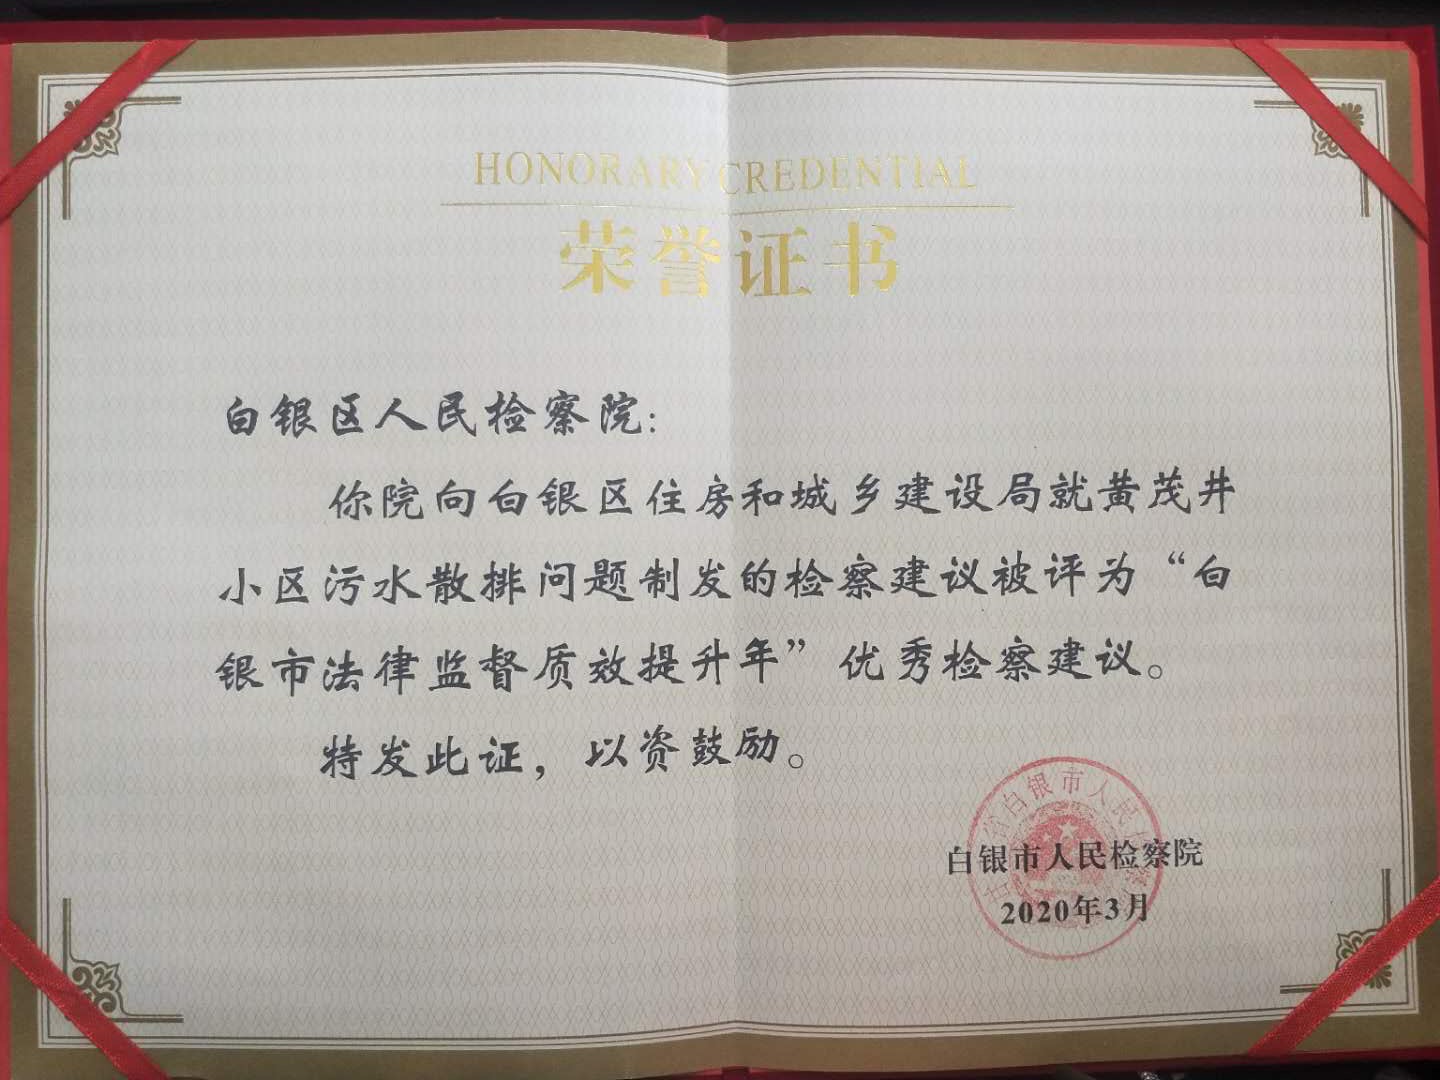 HONORARY CREDENTIAL
荣誉证书
白银区人民检察院：
你院向白银区住房和城乡建设局就黄茂井
小区污水散排问题制发的检察建议被评为“白
银市法律监督质效提升年”优秀检察建议。
特发此证，以资鼓励。
省白银市人民
白银市人民检察院
2020年3月